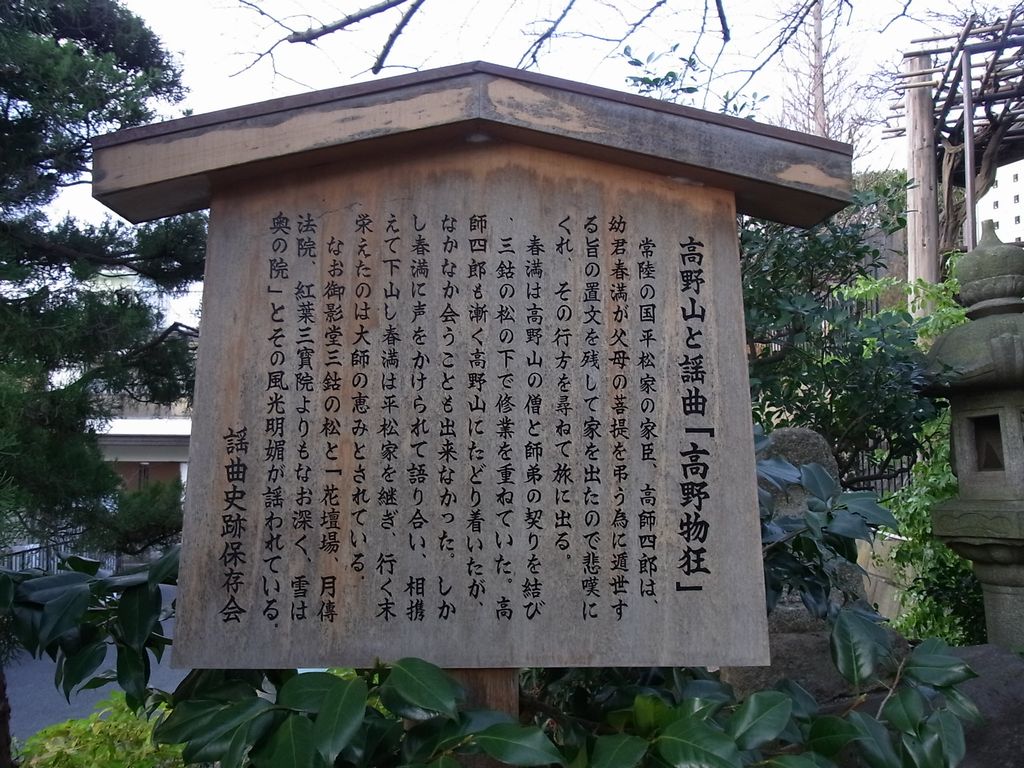 高野山と謡曲「高野物狂」
常陸の国平松家の家臣、高師四郎は、
幼君春満が父母の菩提を弔う為に遁世す
る旨の置文を残して家を出たので悲嘆に
くれ、その行方を尋ねて旅に出る。
春満は高野山の僧と師弟の契りを結び
、三鈷の松の下で修業を重ねていた。高
師四郎も漸く高野山にたどり着いたが、
なかなか会うことも出来なかった。しか
し春満に声をかけられて語り合い、相携
えて下山し春満は平松家を継ぎ、行く末
栄えたのは大師の恵みとされている。
なお御影堂三鈷の松と「花壇場、月傳
法院、紅葉三寶院よりもなお深く、雪は
奥の院」とその風光明媚が謡われている。
謡曲史跡保存会